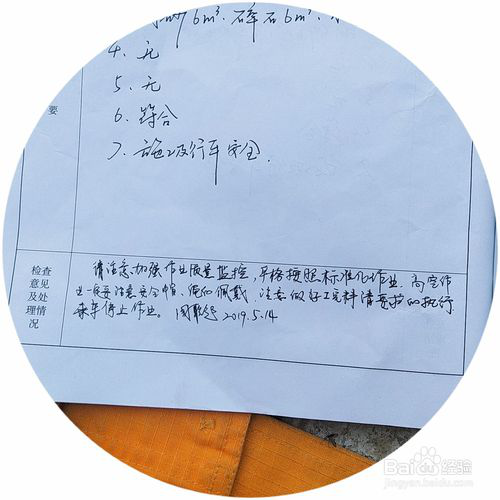 6m³、碎石6m³、
4、无
5、无
要
6、符合
7、施工及行车安全.
检查
意见
及处
理情
况
请注意加强作业质量监控,严格按照标准化作业.高空作
业一定要注意安全帽、绳的佩戴,注意做好工完料清
停止作业。 2019.5.14
Baidu经验
jingyan.baidu.com